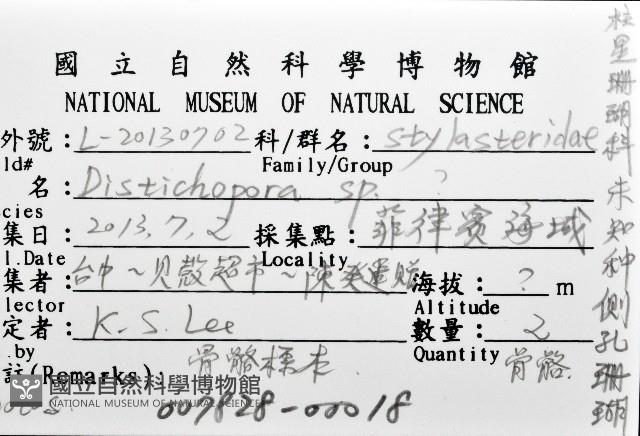 國立自然科學博物館
NATIONAL MUSEUM OF NATURAL SCIENCE
外號：L-20130702 科/群名：Stylasteridae
ld# Family/Group
名：Distichopora sp. ?
cies
集日：2013,7,2 採集點：菲律賓海域
l.Date Locality
集者：台中~貝殼超市~陳 贈 海拔：? m
lector Altitude
定者：K.S. Lee 數量：2
.by Quantity 骨骼
註(Remarks)：骨骼標本
國立自然科學博物館
NATIONAL MUSEUM OF NATURAL SCIENCE
007828-00018
柱星珊瑚科 未知种側孔珊瑚